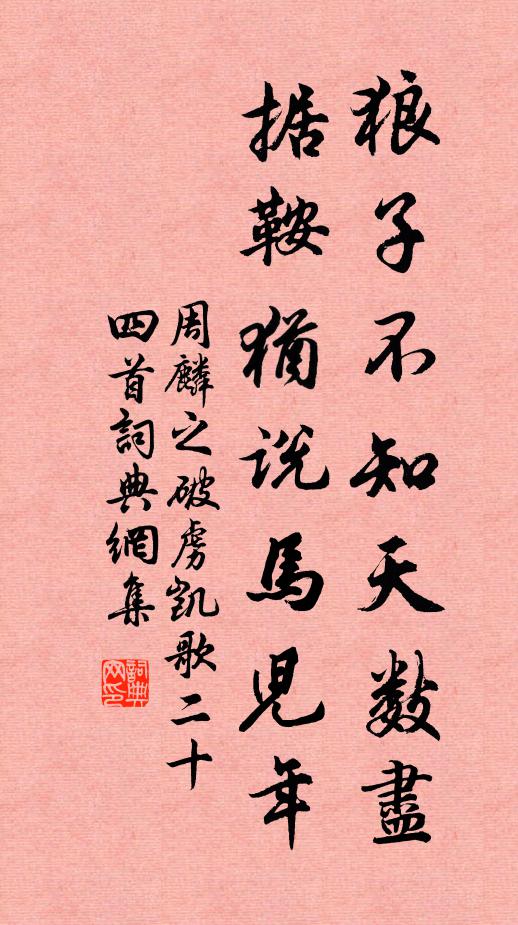 狼子不知天數盡
据鞍猶说馬児年
周麟之破虜凱歌二十
四首詞典網集
詞典
网印